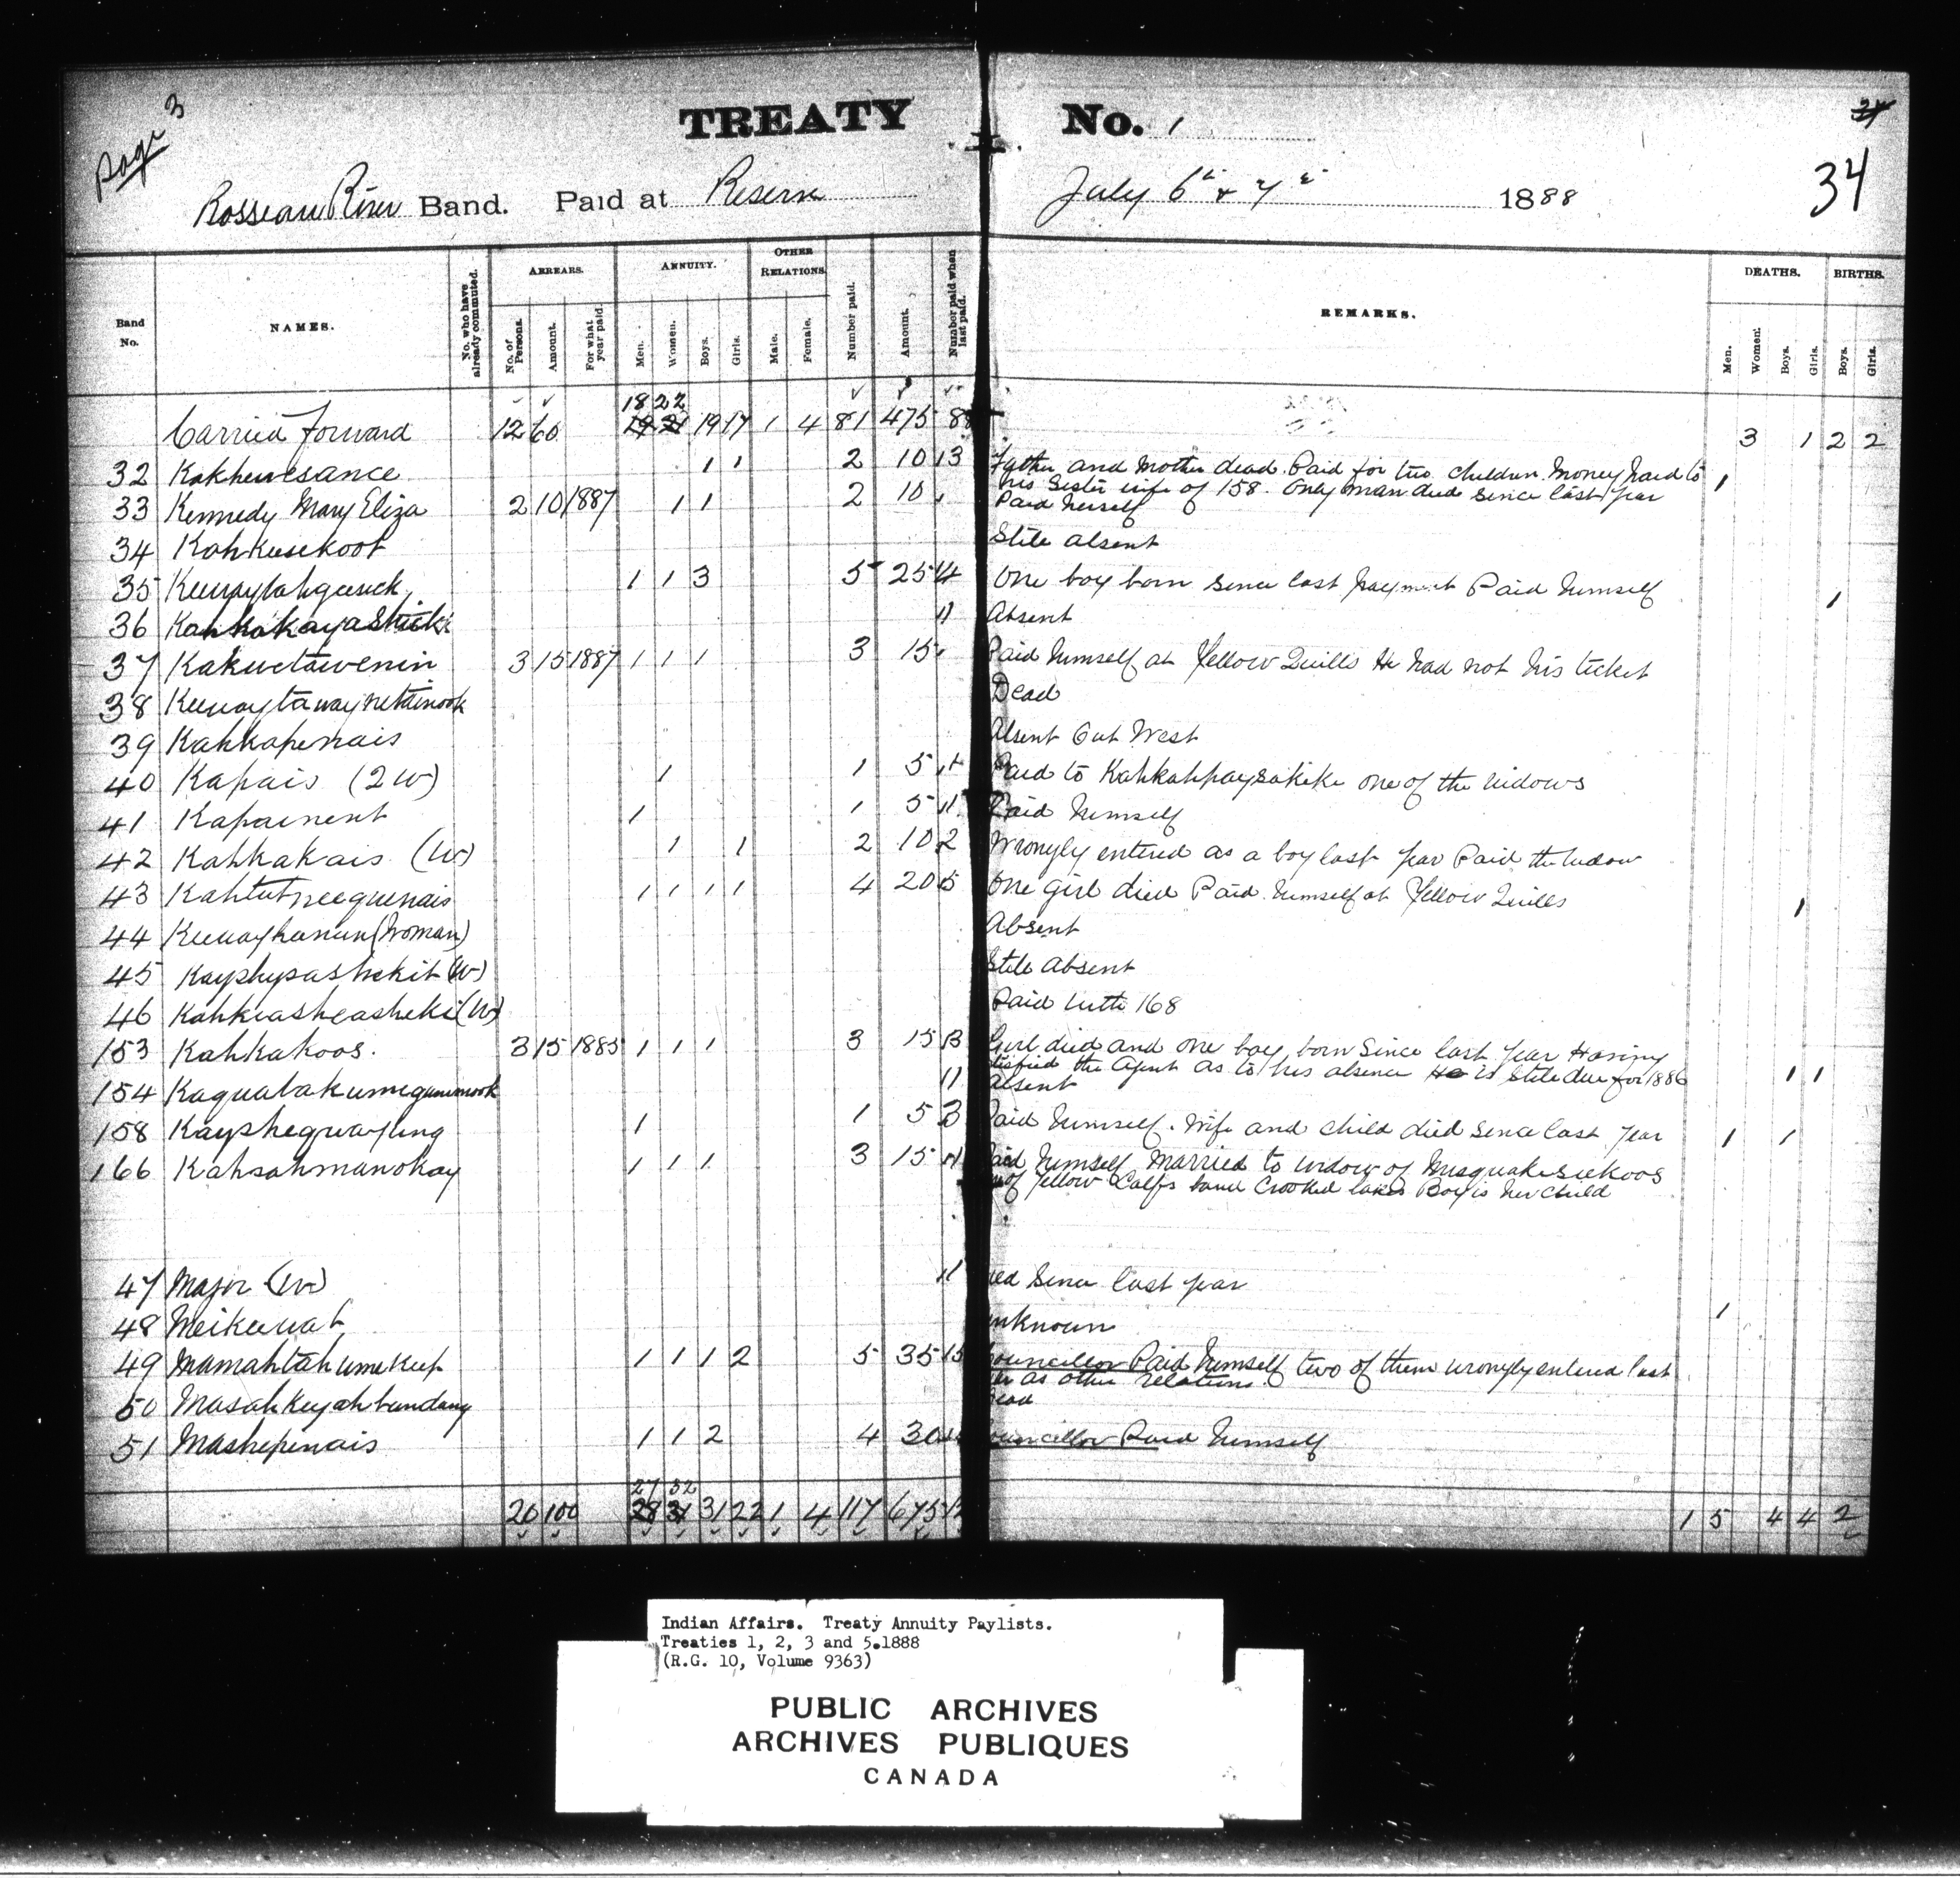 page 3
TREATY No. 1
34
34
Rosseau River Band. Paid at Reserve July 6th & 7th 1888
Band No. NAMES. No. who have already commuted. ARREARS. No. of Persons. Amount. For what year paid. ANNUITY. Men. Women. Boys. Girls. OTHER RELATIONS Male. Female. Number paid. Amount. Number paid when last paid. REMARKS. DEATHS. Men. Women. Boys. Girls. BIRTHS. Boys. Girls.
18 22
Carried Forward 12 60 19 21 19 17 1 4 81 475 88 3 1 2 2
32 Kakhewesance 1 1 2 10 3 Father and Mother dead. Paid for two children. Money paid to 1
his sister wife of 158. Only man died since last year
33 Kennedy Mary Eliza 2 10 1887 1 1 2 10 Paid herself
34 Kahkeesekoot Still absent
35 Keewaytahgeesick 1 1 3 5 25 4 One boy born since last payment Paid himself 1
36 Kahkakayashick 1 Absent
37 Kakuetawenin 3 15 1887 1 1 1 3 15 Paid himself at Yellow Quills He had not his ticket
38 Keewaytawaynetainook Dead
39 Kahkapenais Absent Out West
40 Kapais (2W) 1 1 5 Paid to Kahkahpaysakike one of the widows
41 Kapainent 1 1 5 1 Paid himself
42 Kahkakais (W) 1 1 2 10 2 Wrongly entered as a boy last year Paid the widow
43 Kahtutneequenais 1 1 1 1 4 20 5 One girl died Paid himself at Yellow Quills 1
44 Keewaykanun (Woman) Absent
45 Kayshypashekit (W) Still absent
46 Kahkeasheasheke (W) Paid with 168
153 Kahkakoos. 3 15 1885 1 1 1 3 15 3 Girl died and one boy born since last year Having
satisfied the Agent as to his absence He is still due for 1886 1 1
154 Kaguabakumegunimook 1 Absent
158 Kayshegwayung 1 1 5 3 Paid himself. Wife and child died since last year 1 1
166 Kahsahmanokay 1 1 1 3 15 1 Paid himself Married to widow of Misquakeseekoos
of Yellow Calfs band Crooked lakes Boy is her child
47 Major (W) 1 Died since last year 1
48 Meikeewat Unknown
49 Mamahtahkumekeep 1 1 1 2 5 35 5 Councillor Paid himself two of them wrongly entered last
year as other relations
50 Masahkeyahbundung Dead
51 Mashepenais 1 1 2 4 30 4 Councillor Paid himself
27 32
20 100 28 31 31 22 1 4 117 675 1 5 4 4 2
Indian Affairs. Treaty Annuity Paylists.
Treaties 1, 2, 3 and 5.1888
(R.G. 10, Volume 9363)
PUBLIC ARCHIVES
ARCHIVES PUBLIQUES
CANADA